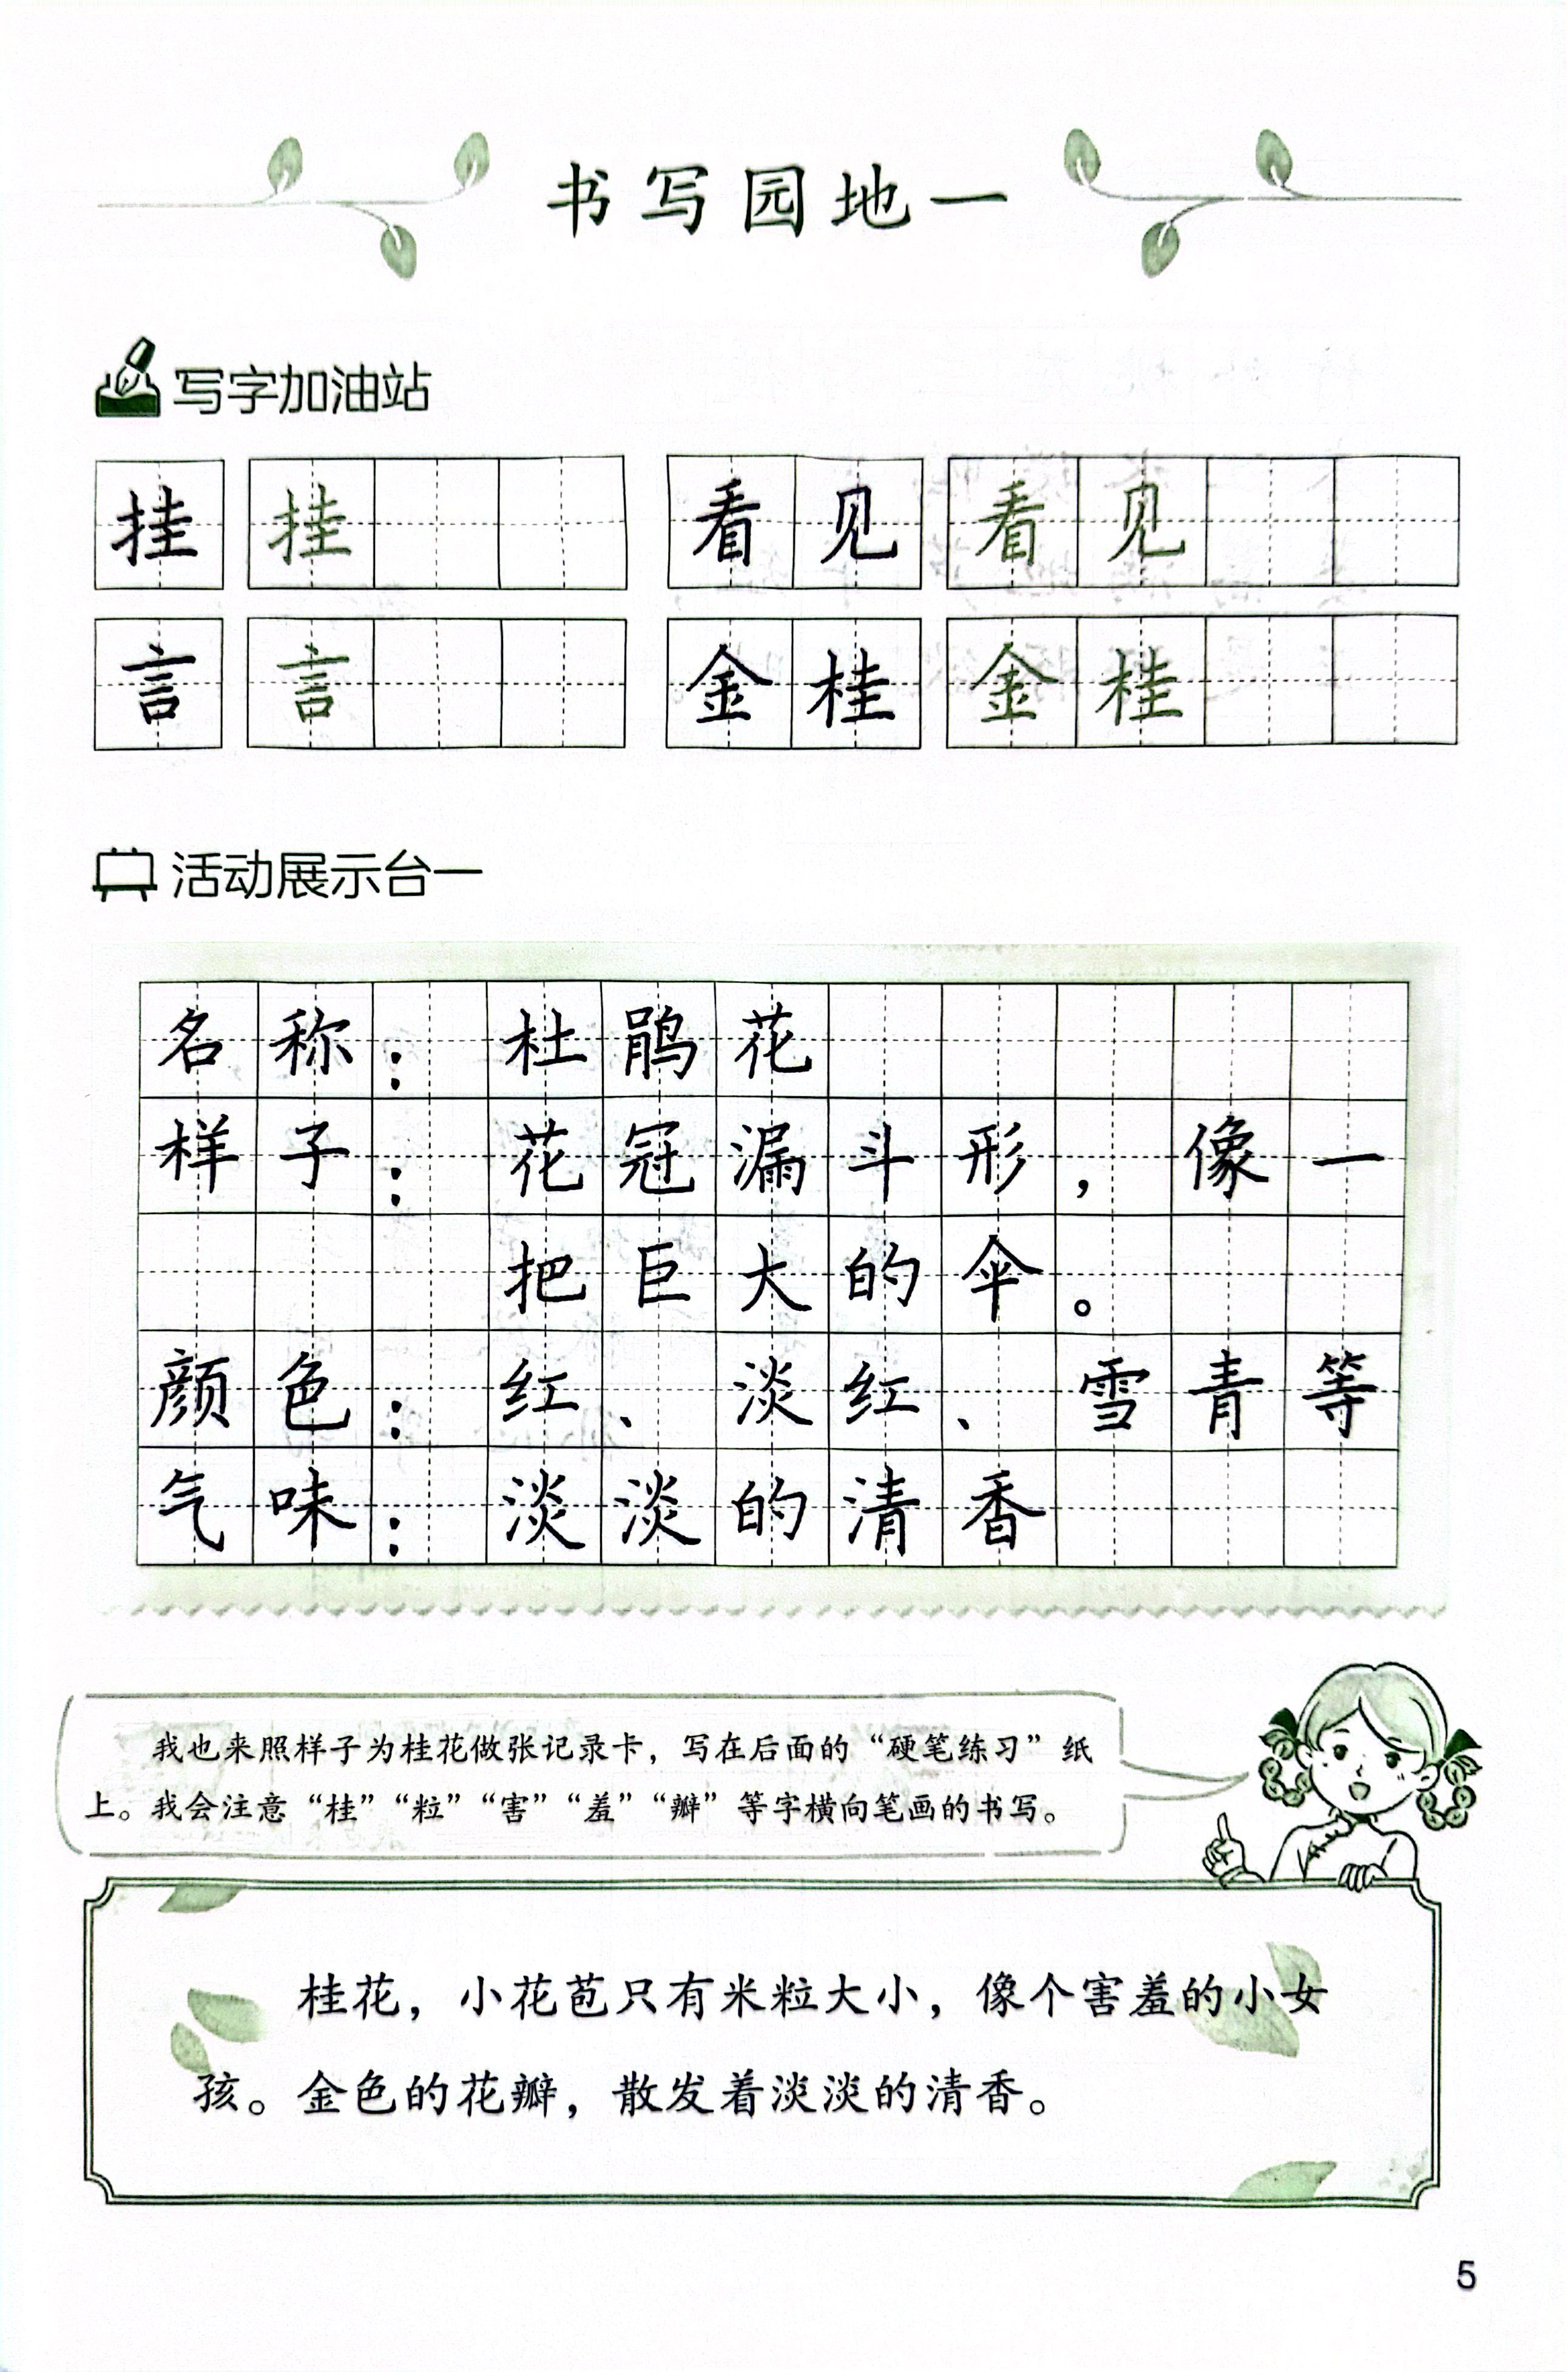 书写园地一
写字加油站
挂 挂 看见 看见
言 言 金桂 金桂
活动展示台一
名称：杜鹃花
样子：花冠漏斗形，像一
把巨大的伞。
颜色：红、淡红、雪青等
气味：淡淡的清香
我也来照样子为桂花做张记录卡，写在后面的“硬笔练习”纸
上。我会注意“桂”“粒”“害”“羞”“瓣”等字横向笔画的书写。
桂花，小花苞只有米粒大小，像个害羞的小女
孩。金色的花瓣，散发着淡淡的清香。
5